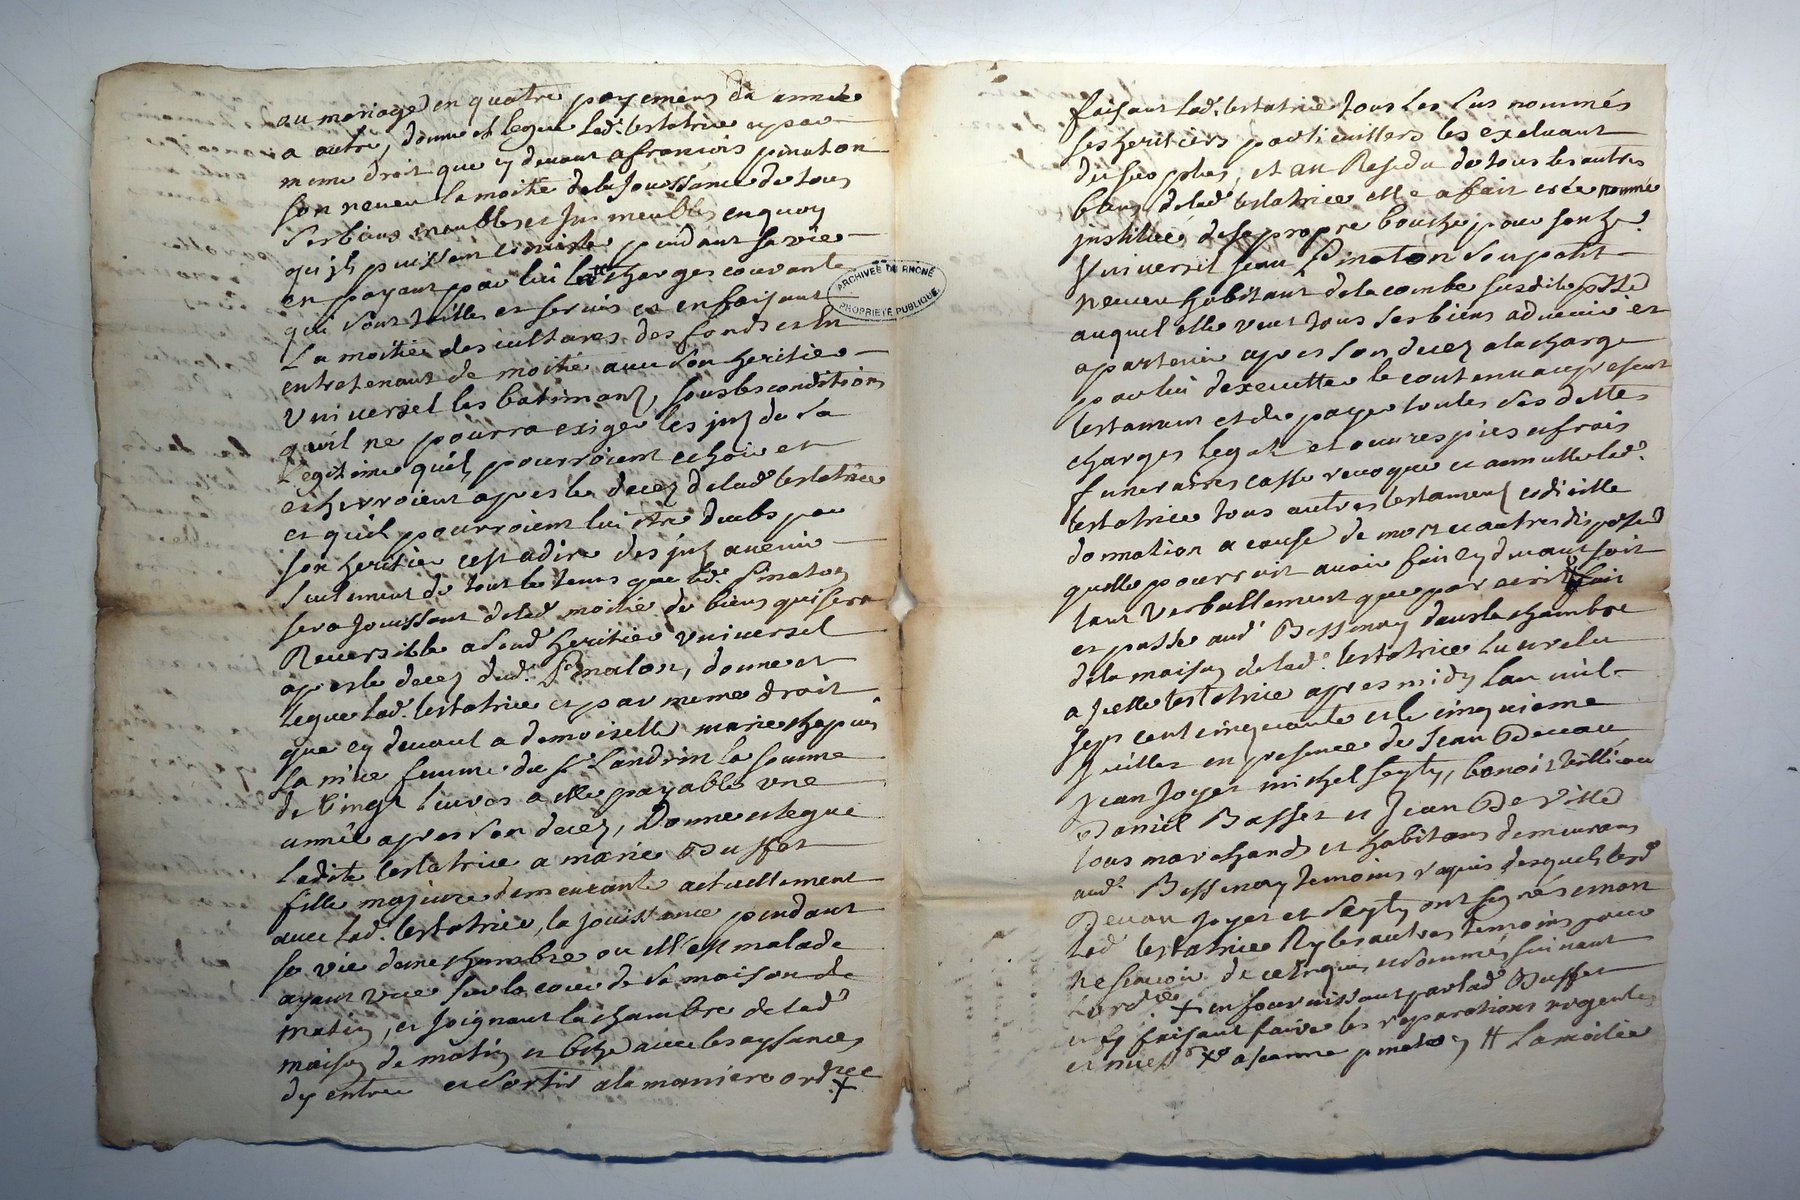 au mariage en quatre payemens da année
a autre, donne et legue lad. testatrice et par
meme droit que cy devant a francois pinaton
son neveu la moitié de la Jouissance de tous
ses biens meubles et Immeubles en quoy
qu'ils puissent consister pendant sa vie
en payant par lui les charges courante
qui sont tailles et servis et en faisant
La moitié des cultures des fonds et En
entretenant de moitié avec son heritier
Universel les batimans, sous les conditions
quil ne pourra exiger les jnts de sa
Legitime qu'ils pourroient echoir et
echerroient apres le decez de lad testatrice
et quil pourroient lui etre deubs par
son heritier cest a dire des jnts avenir
seulement de tout le tems que led. Pinaton
sera Jouissant de lad moitié de biens qui sera
Reversible a sond heritier Universel
apres le decez dud. Pinaton, donne et
legue lad. testatrice et par meme droit
que cy devant a demoiselle marie chapuis
sa niece femme du Sr Landrin la somme
de vingt livres a elle payable une
année apres son decez, Donne et legue
Ladite testatrice a marie Buffet
fille majeure demeurante actuellement
avec lad. testatrice, la jouissance pendant
sa vie dune chambre ou elle est malade
ayant vue sur la cour de sa maison de
matin, et joignant la chambre de lad
maison de matin et bize avec les aysances
dy entrer et sortir a la maniere ordre +
ARCHIVES DU RHONE
PROPRIETE PUBLIQUE
faisant lad. testatrice tous les sus nommés
ses heritiers particuilliers les excluant
du reste, et au Residu de tous les autres
biens de lad testatrice elle a fait crée nommé
institué de sa propre bouche pour son her.
Universel Jean Pinaton son petit
neveu habitant de la combe susdite psse
auquel elle veut tous ses biens advenir et
apartenir apres son decez a la charge
par lui dexecutter le contenu au present
testament et de payer toutes ses dettes
charges legats et oeuvres pies et frais
funeraires casse revoque et annulle lad.
testatrice tous autres testaments codicille
donnation a cause de mort et autres disposid
quelle pourroit avoir fait cy devant soit
tant verballement que par ecrit fait
et passé aud. Bessenay dans la chambre
de la maison de lad. testatrice Lu et relu
a jcelle testatrice apres midy Lan mil
sept cent cinquante et le cinquieme
Juillet en presence de Jean Devau
Jean Joyet michel Seyty, benoit Villi
Daniel Basset et Jean De Ville
tous marchands et habitans demeurans
aud. Bessenay temoins requis desquels lesd
Devau Joyet et Seyty ont signés et non
Lad testatrice Ny les autres temoins pour
ne scavoir de ce Enquis et sommés suivant
Lordce + en fournissant par lad. Buffet
et y faisant faire les reparations urgentes
a jeanne pinaton H La moitie